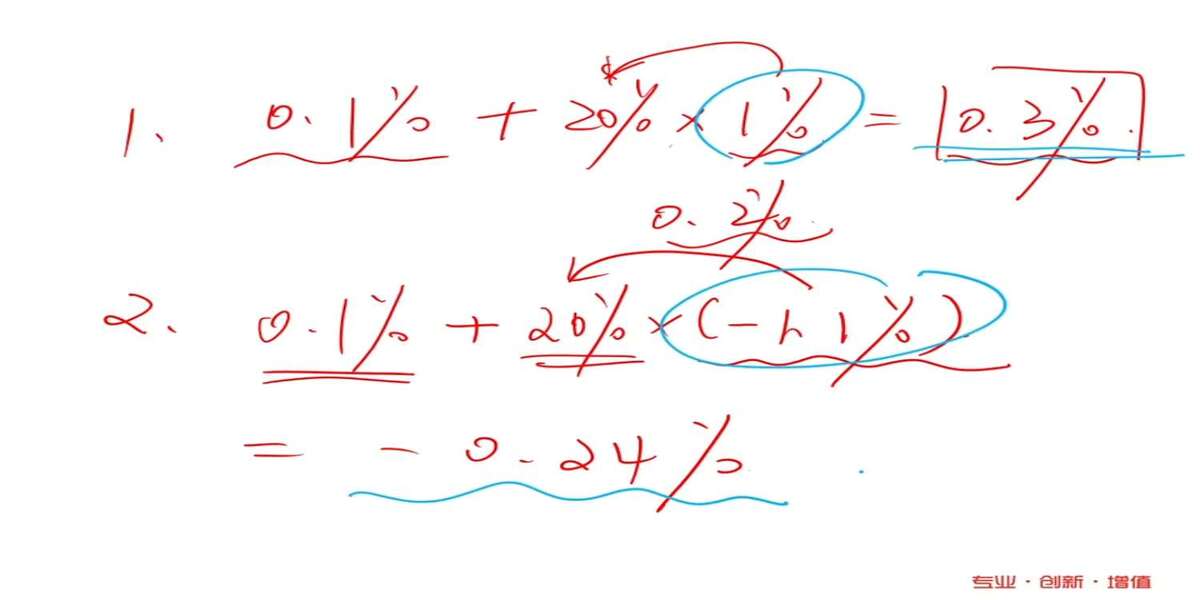 1. 0.1% + 20% × 1% = 0.3%.
0.2%
2. 0.1% + 20% × (-h 1%)
= -0.24%
专业·创新·增值